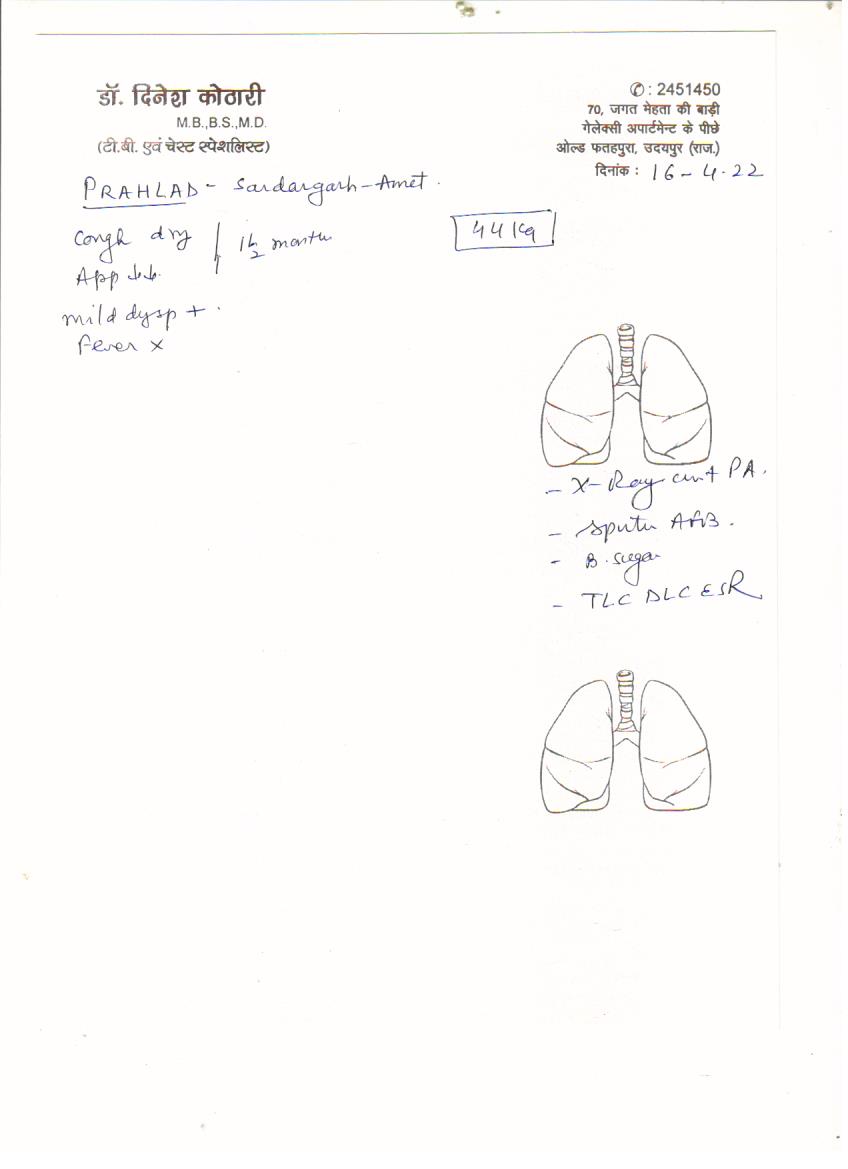 डॉ. दिनेश कोठारी
M.B.,B.S.,M.D.
(टी.बी. एवं चेस्ट स्पेशलिस्ट)
✆ : 2451450
70, जगत मेहता की बाड़ी
गेलेक्सी अपार्टमेन्ट के पीछे
ओल्ड फतहपुरा, उदयपुर (राज.)
दिनांक : 16-4.22
PRAHLAD - Sardargarh-Amet.
44 Kg
Cough dry
1 1/2 month
App ↓↓.
mild dysp + .
Fever ×
- X-Ray PA.
- Sputu AFB.
- B. Sugar
- TLC DLC ESR